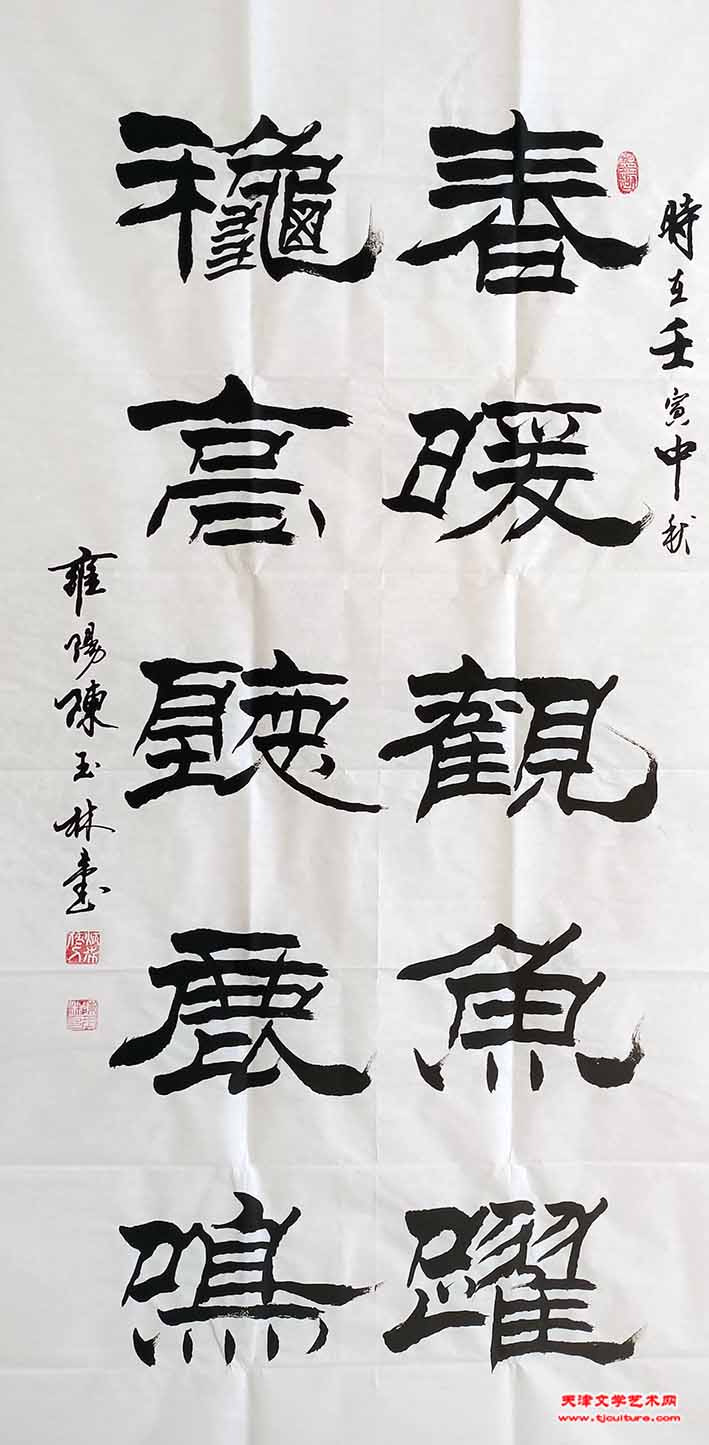 時在壬寅中秋
春暖觀魚躍
龝高聽鹿鳴
雍陽陳玉林書
天津文学艺术网
www.tjculture.com